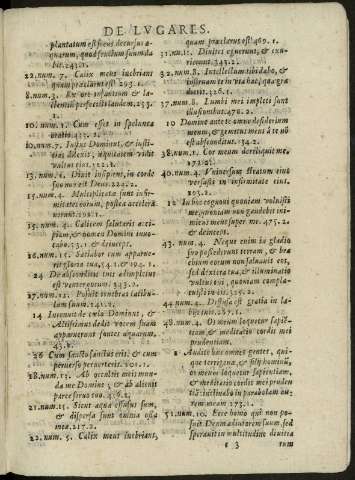 DE LVGARES.
plantatum est secus decursus a-
quarum, quod fructum suum da
bit. 241.1.
22. num. 7. Calix meus inebrians
quam praeclarus est! 293.1.
8. num. 3. Ex ore infantium &
lactentiũ perfecisti laudem. 253.
1.
10. num. 1. Cum esset in spelunca
oratio. 2.
10. num. 7. Iustus Dominus, & iusti-
tias dilexit, aequitatem vidit
vultus eius. 2.
13. num. 1. Dixit insipiens, in corde
suo non est Deus. 224.2.
15. num. 4. Multiplicatae sunt infir-
mitates eorum, postea accelera
verunt. 198.1.
15. num. 4. Calicem salutaris acci-
piam, & nomen Domini inuo-
cabo. 1. & deinceps.
16. num. 15. Satiabor cum apparue-
rit gloria tua. 54.1. & 194.1.
24 De absconditis tuis adimpletus
est venter eorum. 343.2.
17. num. 12. Posuit tenebras latibu-
lum suum. 241.2.
14 Intonuit de coelo Dominus, &
Altissimus dedit vocem suam
apparuerunt fontes aquarum,
43.1.
26 Cum sancto sanctus eris: & cum
peruerso peruerteris. 201.1.
18. num. 13. Ab occultis meis mun-
da me Domine; & ab alienis
parce seruo tuo. 466.2.
21. num. 15. Sicut aqua effusus sum,
& dispersa sunt omnia ossa
mea. 217.2.
22. num. 5. Calix meus inebrians,
quam praeclarus est! 469.1.
31. nu. 11. Diuites eguerunt, & exu-
rierunt. 343.2.
32. num. 8. Intellectum tibi dabo, &
instruam te in via hac, qua gra
dieris. 126.1.
37. num. 8. Lumbi mei impleti sunt
illusionibus. 470.2.
10 Domine ante te omne desiderium
meum, & gemitus meus à te nõ
est absconditus. 134.2.
38. num. 1. Cor meum dereliquit me.
40. num. 4. Vniuersum stratum eius
versasti in infirmitate eius.
12 In hoc cognoui quoniam voluisti
me, quoniam non gaudebit ini-
micus meus super me. 475.2.
& deinceps.
43. num. 4. Neque enim in gladio
suo possederunt terram, & bra
chium eorum non saluauit eos,
sed dextera tua, & illuminatio
vultus tui, quoniam compla-
cuisti in eis.
44. num. 4. Diffusa est gratia in la-
bijs tuis.
48. num. 4. Os meum loquetur sapiẽ-
tiam, & meditatio cordis mei
prudentiam.
2 Audite haec omnes gentes, quique
terrigenae, & filij hominũ,
os meum loquetur sapientiam,
& meditatio cordis mei pruden
tiã: inclinabo in parabolam au-
rem meam 273.1.
51. num. 10. Ecce homo qui non po-
suit Deum adiutorem suum, sed
sperauit in multitudine diuitia
¢ 3 rum